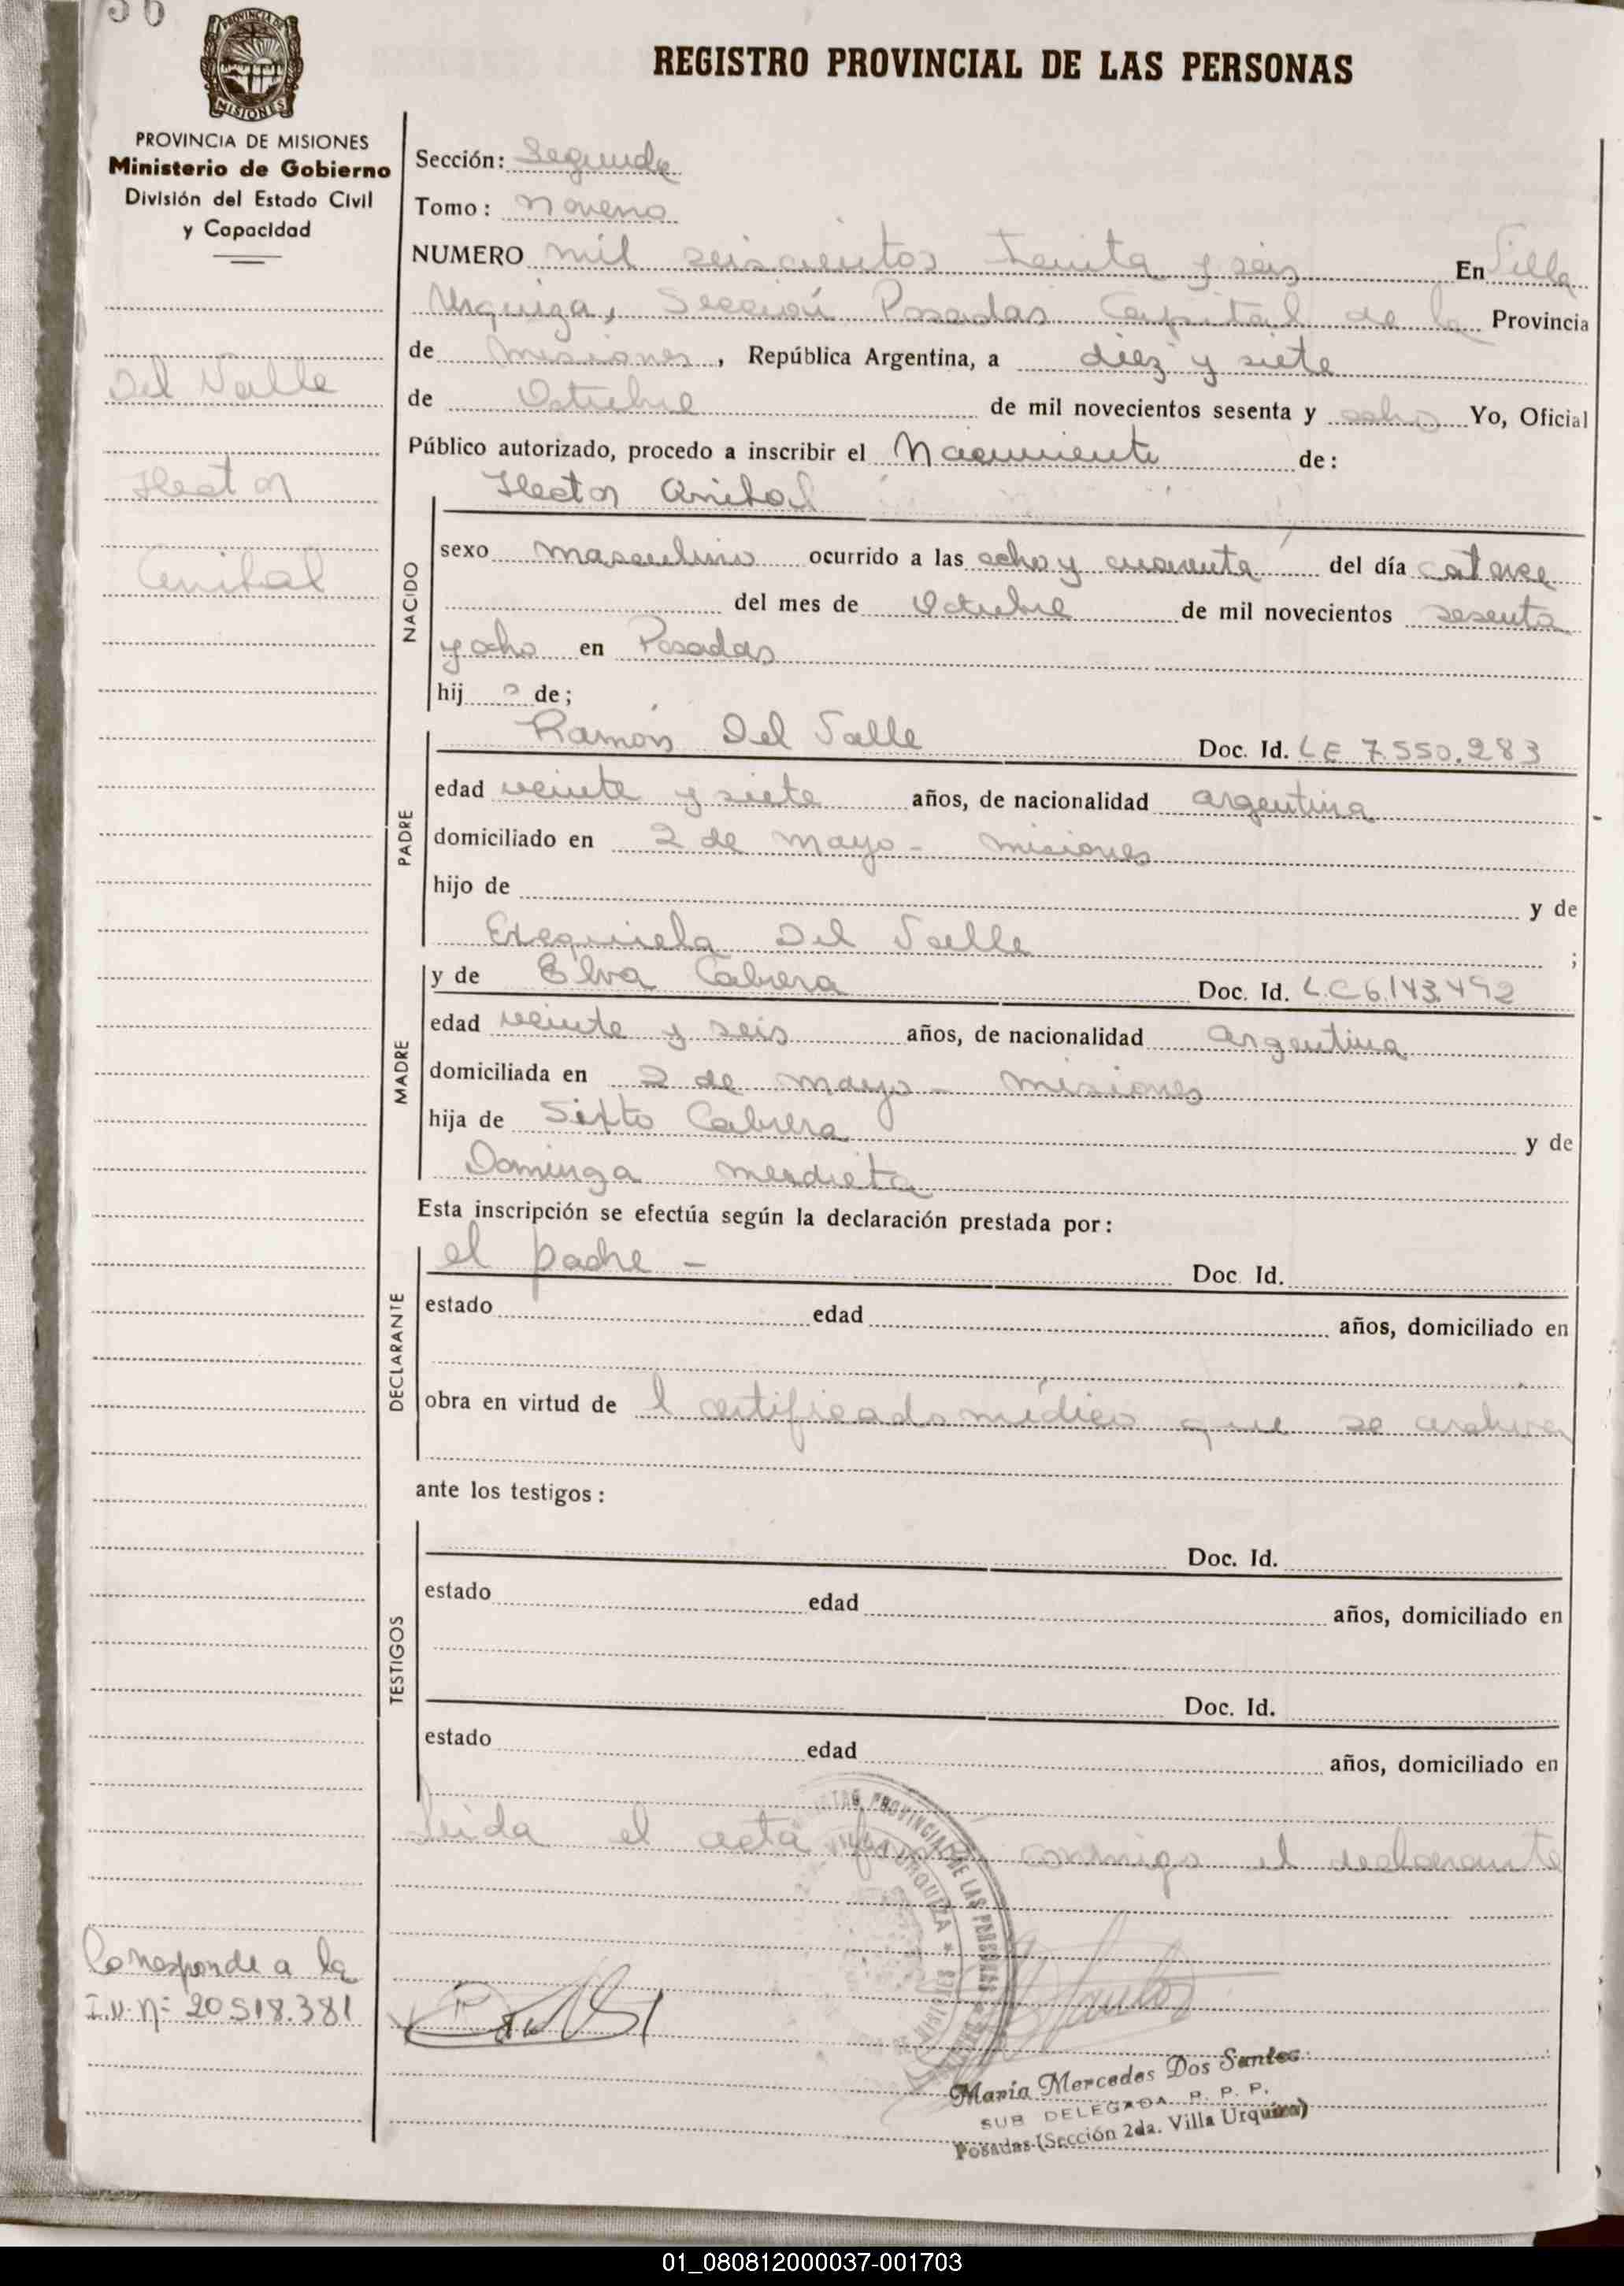 36
PROVINCIA DE
MISIONES
REGISTRO PROVINCIAL DE LAS PERSONAS
PROVINCIA DE MISIONES
Ministerio de Gobierno
División del Estado Civil
y Capacidad
Del Valle
Hector
Anibal
Sección: Segunda
Tomo: Noveno
NUMERO mil seiscientos treinta y seis En Villa
Urquiza, Sección Posadas Capital de la Provincia
de Misiones, República Argentina, a diez y siete
de Octubre de mil novecientos sesenta y ocho Yo, Oficial
Público autorizado, procedo a inscribir el Nacimiento de:
Hector Anibal
NACIDO
sexo masculino ocurrido a las ocho y cuarenta del día catorce
del mes de Octubre de mil novecientos sesenta
y ocho en Posadas
hij o de;
PADRE
Ramón Del Valle Doc. Id. LE 7.550.283
edad veinte y siete años, de nacionalidad argentina
domiciliado en 2 de mayo - misiones
hijo de y de
Exequiela Del Valle ;
MADRE
y de Elva Cabrera Doc. Id. L.C 6.143.492
edad veinte y seis años, de nacionalidad argentina
domiciliada en 2 de mayo - misiones
hija de Sixto Cabrera y de
Dominga mendieta
Esta inscripción se efectúa según la declaración prestada por:
DECLARANTE
el padre - Doc. Id.
estado edad años, domiciliado en
obra en virtud de l certificado médico que se archiva
ante los testigos:
TESTIGOS
Doc. Id.
estado edad años, domiciliado en
Doc. Id.
estado edad años, domiciliado en
Leida el acta firma conmigo el declarante
REGISTRO PROVINCIAL DE LAS PERSONAS
VILLA URQUIZA * MISIONES
Corresponde a la
I.N. Nº 20.518.381
María Mercedes Dos Santos
SUB DELEGADA R. P. P.
Posadas (Sección 2da. Villa Urquiza)
01_080812000037-001703